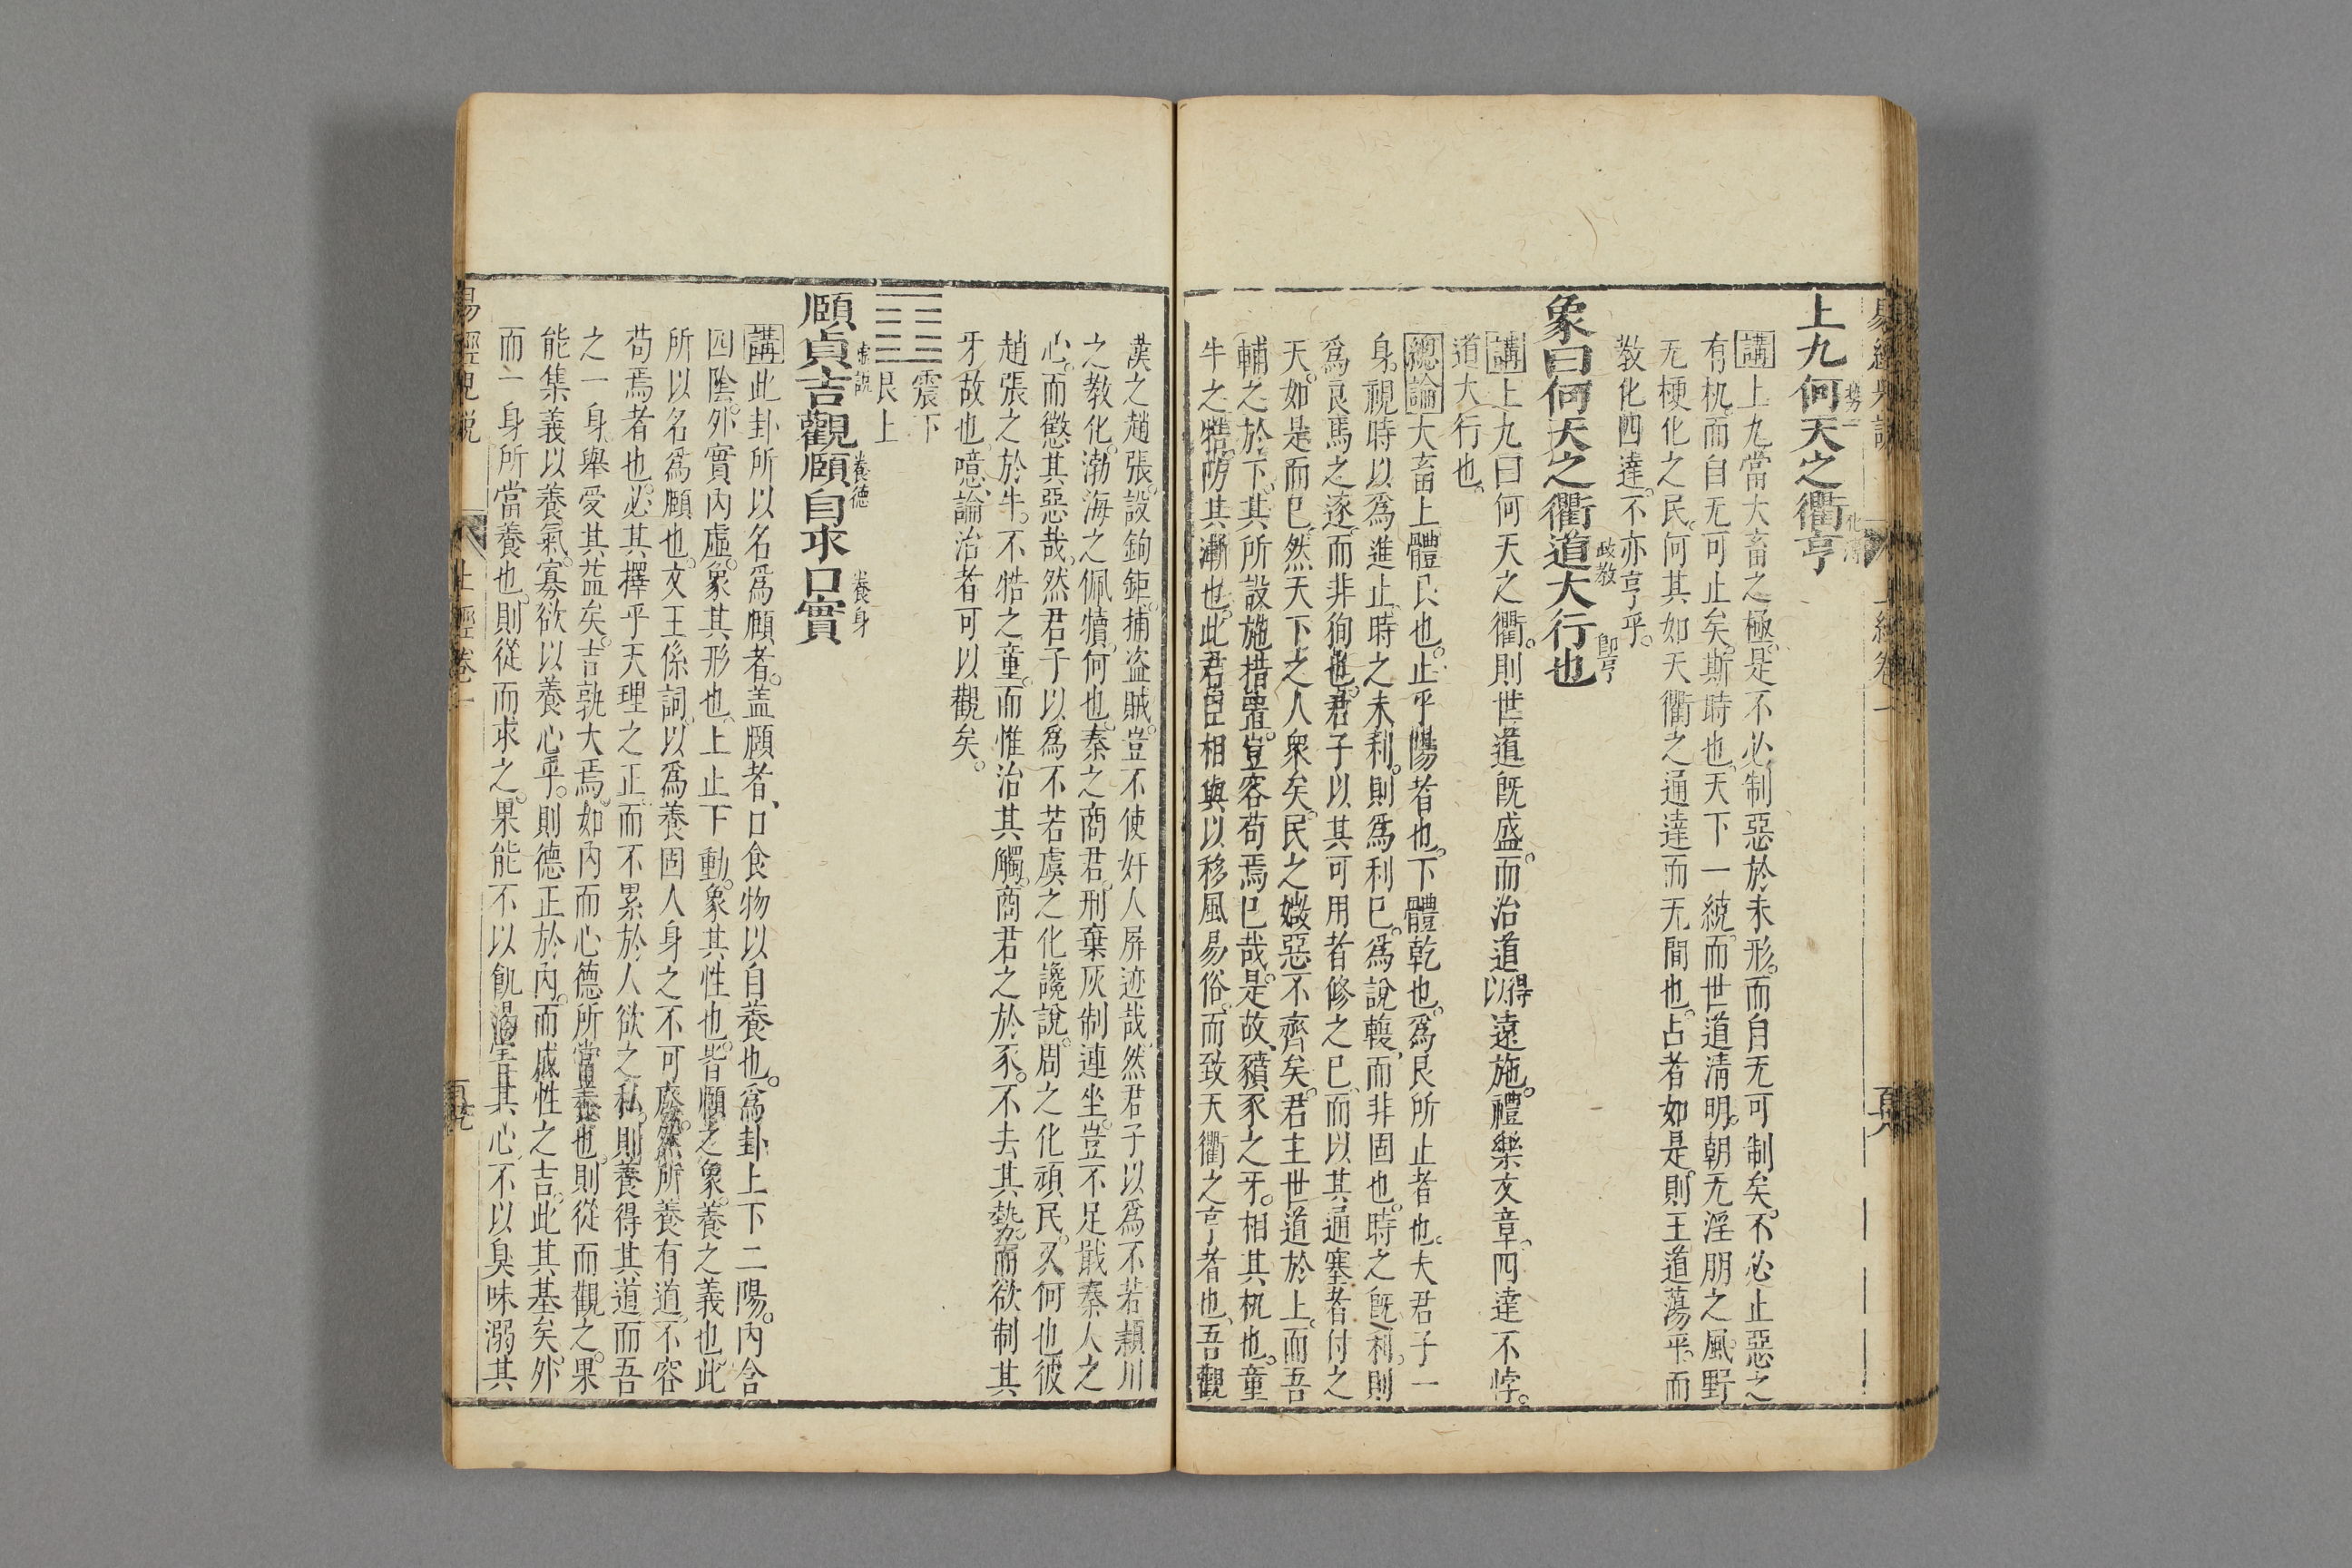 上九何天之衢亨
講上九當大畜之極是不必制惡於未形而自无可制矣不必止惡之
有机而自无可止矣斯時也天下一統而世道淸明朝无淫朋之風野
无梗化之民何其如天衢之通達而无間也占者如是則王道蕩平而
敎化四達不亦亨乎
象曰何天之衢道大行也
政敎
卽亨
講上九曰何天之衢則世道旣盛而治道得以遠施禮樂文章四達不悖
道大行也
總論大畜上體艮也止乎陽者也下體乾也爲艮所止者也夫君子一
身視時以爲進止時之未利則爲利已爲說輹而非固也時之旣利則
爲良馬之逐而非徇也君子以其可用者修之已而以其通塞者付之
天如是而已然天下之人衆矣民之媺惡不齊矣君主世道於上而吾
輔之於下其所設施措置豈容苟焉已哉是故豶豕之牙相其机也童
牛之牿防其漸也此君臣相與以移風易俗而致天衢之亨者也吾觀
漢之趙張設鉤鉅捕盗賊豈不使奸人屏迹哉然君子以爲不若穎川
之敎化渤海之佩犢何也秦之商君刑棄灰制連坐豈不足戢秦人之
心而懲其惡哉然君子以爲不若虞之化讒說周之化頑民又何也彼
趙張之於牛不牿之童而惟治其觸商君之於豕不去其勢而欲制其
牙故也噫論治者可以觀矣
震下
艮上
頤貞吉觀頤自求口實
養德
養身
講此卦所以名爲頤者盖頤者口食物以自養也爲卦上下二陽內含
四陰外實內虛象其形也上止下動象其性也皆頤之象養之義也此
所以名爲頤也文王係詞以爲養固人身之不可廢然所養有道不容
苟焉者也必其擇乎天理之正而不累於人欲之私則養得其道而吾
之一身舉受其益矣吉孰大焉如內而心德所當養也則從而觀之果
能集義以養氣寡欲以養心乎則德正於內而成性之吉此其基矣外
而一身所當養也則從而求之果能不以飢渴害其心不以臭味溺其
易經兒說
上經卷一